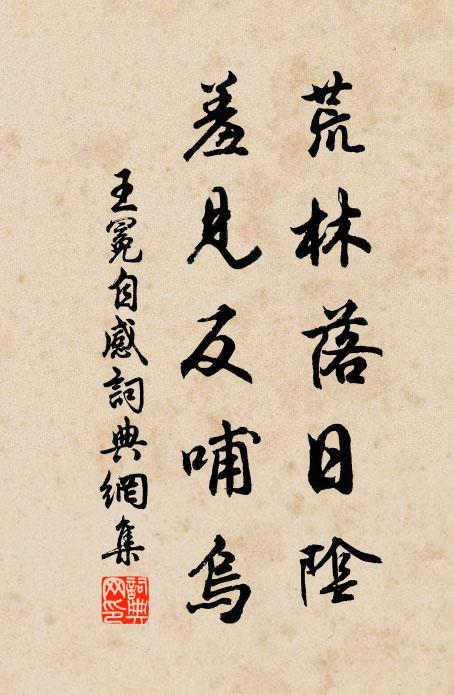 荒林落日陰
羞見反哺烏
王冕自感詞典網集
詞典
网印